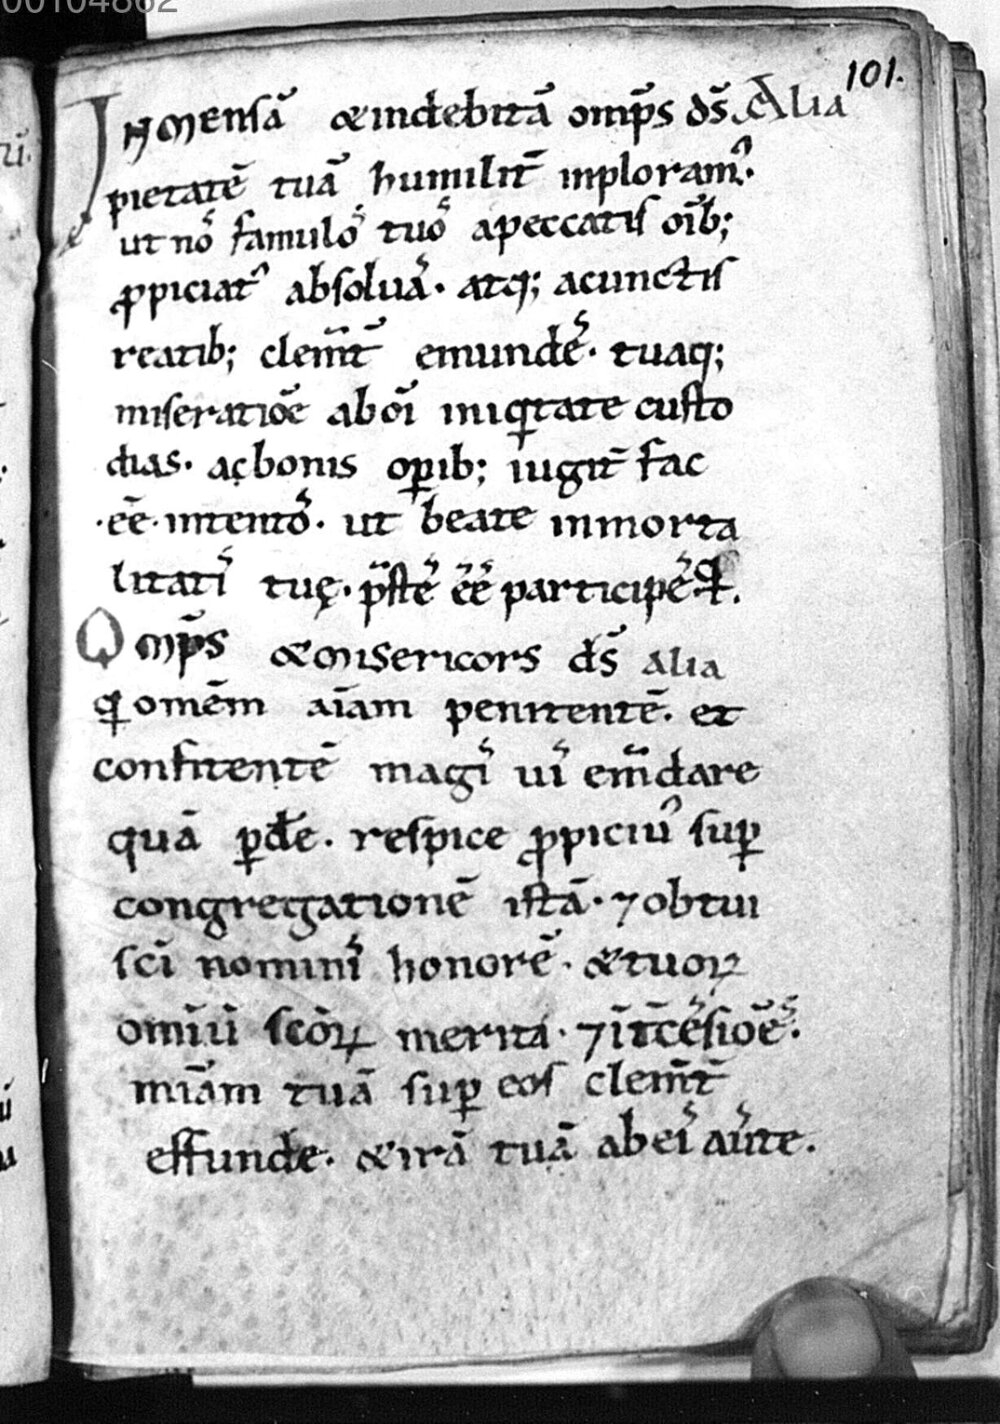 00104862
101.
INmensā & indebitā omp̄s ds̄. Alia
pietatē tuā humilit̄ inploram᷒.
ut nō famulo᷒ tuo᷒ apeccatis oīb;
ꝓpiciat᷒ absoluā᷒. atq; acunctis
reatib; clem̄t̄ emunde᷒. tuaq;
miseratiōe aboī iniqͥtate custo
dias. ac bonis oꝑib; iugit̄ fac
.eē. intento᷒. ut beate inmorta
litati᷒ tuę. p̄ste᷒ eē᷒ participe᷒ ꝑ.
Omp̄s & misericors ds̄ alia
qͥ omēm aīam penitentē. et
confitentē magi᷒ ui᷒ em̄dare
quā ꝑdere. respice ꝓpiciu᷒ suꝑ
congregationē istā. ⁊ obtui
sc̄i nomini᷒ honorē. & tuoꝝ
omīū sc̄oꝝ merita. ⁊ īt̄cēsiōe᷒.
mīam tuā suꝑ eos clem̄t̄
effunde. & irā tuā ab ei᷒ au᷒te.